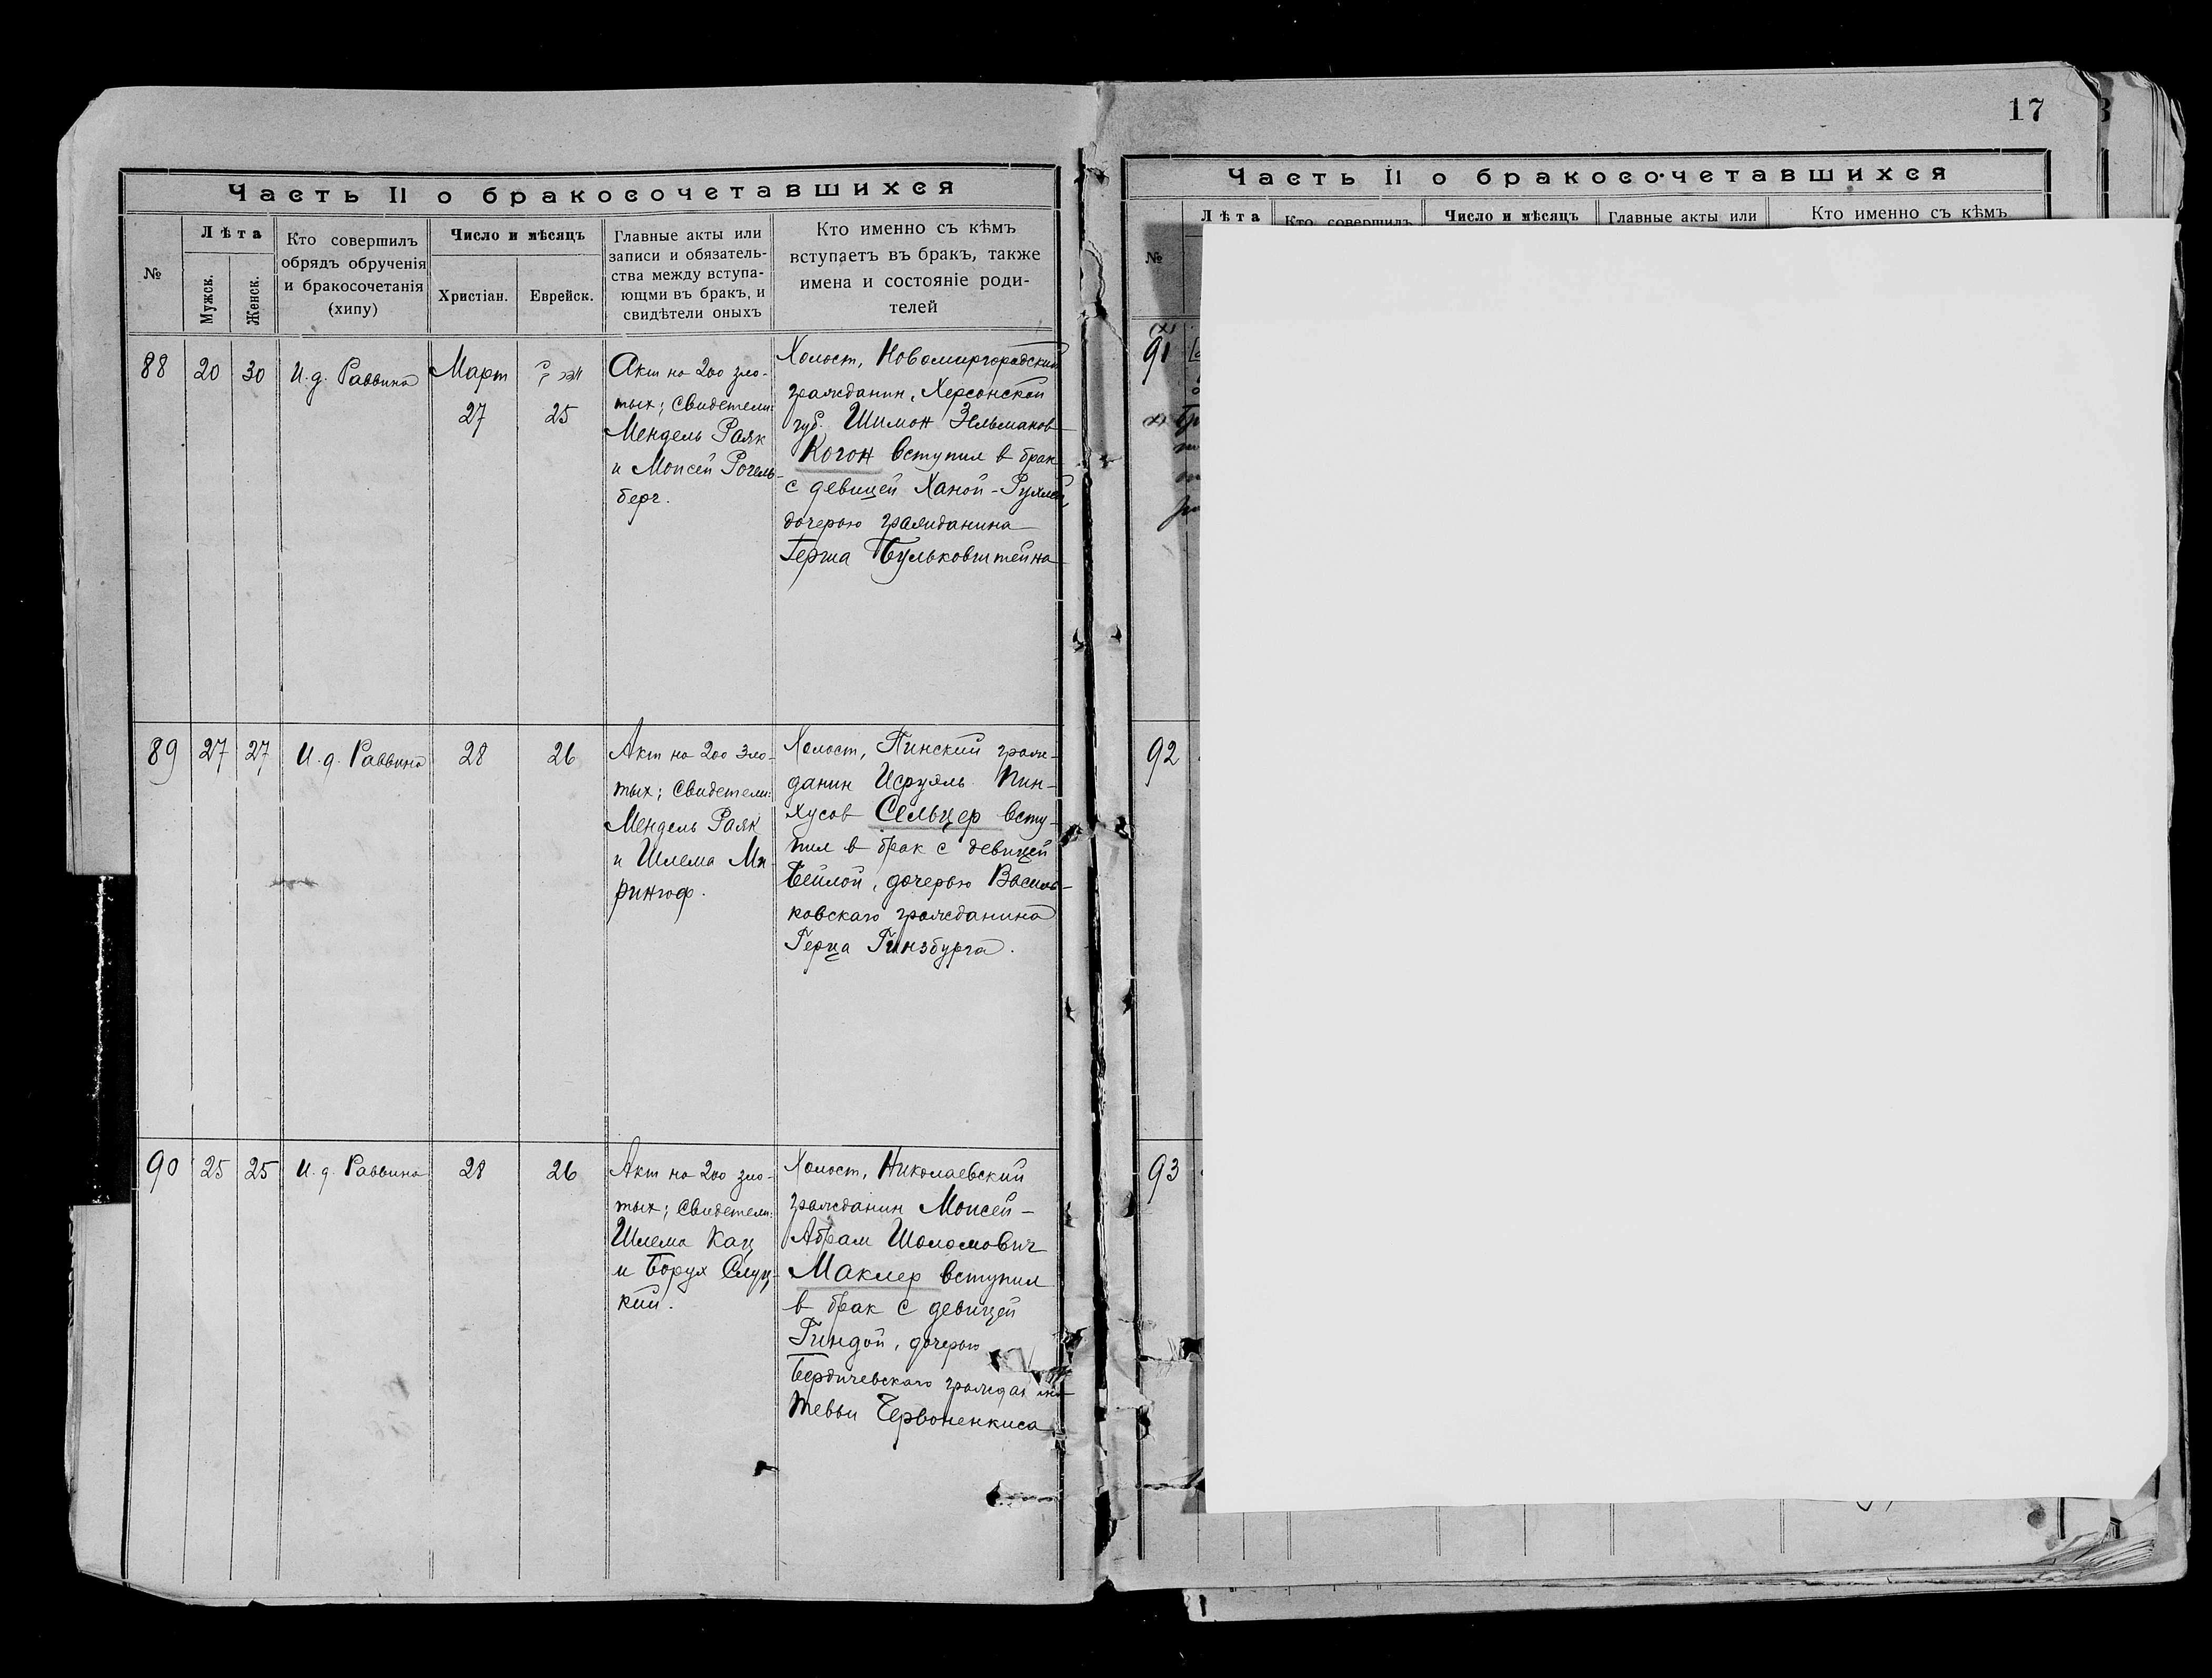 Часть II о бракосочетавшихся
№
Лѣта
Мужск.
Женск.
Кто совершилъ
обрядъ обрученія
и бракосочетанія
(хипу)
Число и мѣсяцъ
Христіан.
Еврейск.
Главные акты или
записи и обязатель-
ства между вступа-
ющми въ бракъ, и
свидѣтели оныхъ
Кто именно съ кѣмъ
вступаетъ въ бракъ, также
имена и состояніе роди-
телей
88
20
30
И.д. Раввина
Март
27
25
Акт на 200 зло-
тых; Свидетели:
Мендель Раяк
и Моисей Рогель-
берг.
Холост, Новомиргородский
гражданин, Херсонской
губ. Шимон Эльманов
Когон вступил в брак
с девицей Ханой-Рухлей,
дочерью гражданина
Герша Бульковштейна
89
27
27
И.д. Раввина
28
26
Акт на 200 зло-
тых; Свидетели:
Мендель Раяк
и Шлема Ми-
рингоф.
Холост, Пинский граж-
данин Исруэль Пин-
хусов Сельцер всту-
пил в брак с девицей
Бейлой, дочерью Василь-
ковскаго гражданина
Герца Гинзбурга.
90
25
25
И.д. Раввина
28
26
Акт на 200 зло-
тых; Свидетели:
Шлема Кац
и Борух Слуц-
кий.
Холост, Николаевский
гражданин Моисей-
Абрам Шоломович
Маклер вступил
в брак с девицей
Гиндой, дочерью
Бердичевскаго
Тевьи Червоненкиса
17
Часть II о бракосочетавшихся
№
Лѣта
Кто совершилъ
Число и мѣсяцъ
Главные акты или
Кто именно съ кѣмъ
91
92
93